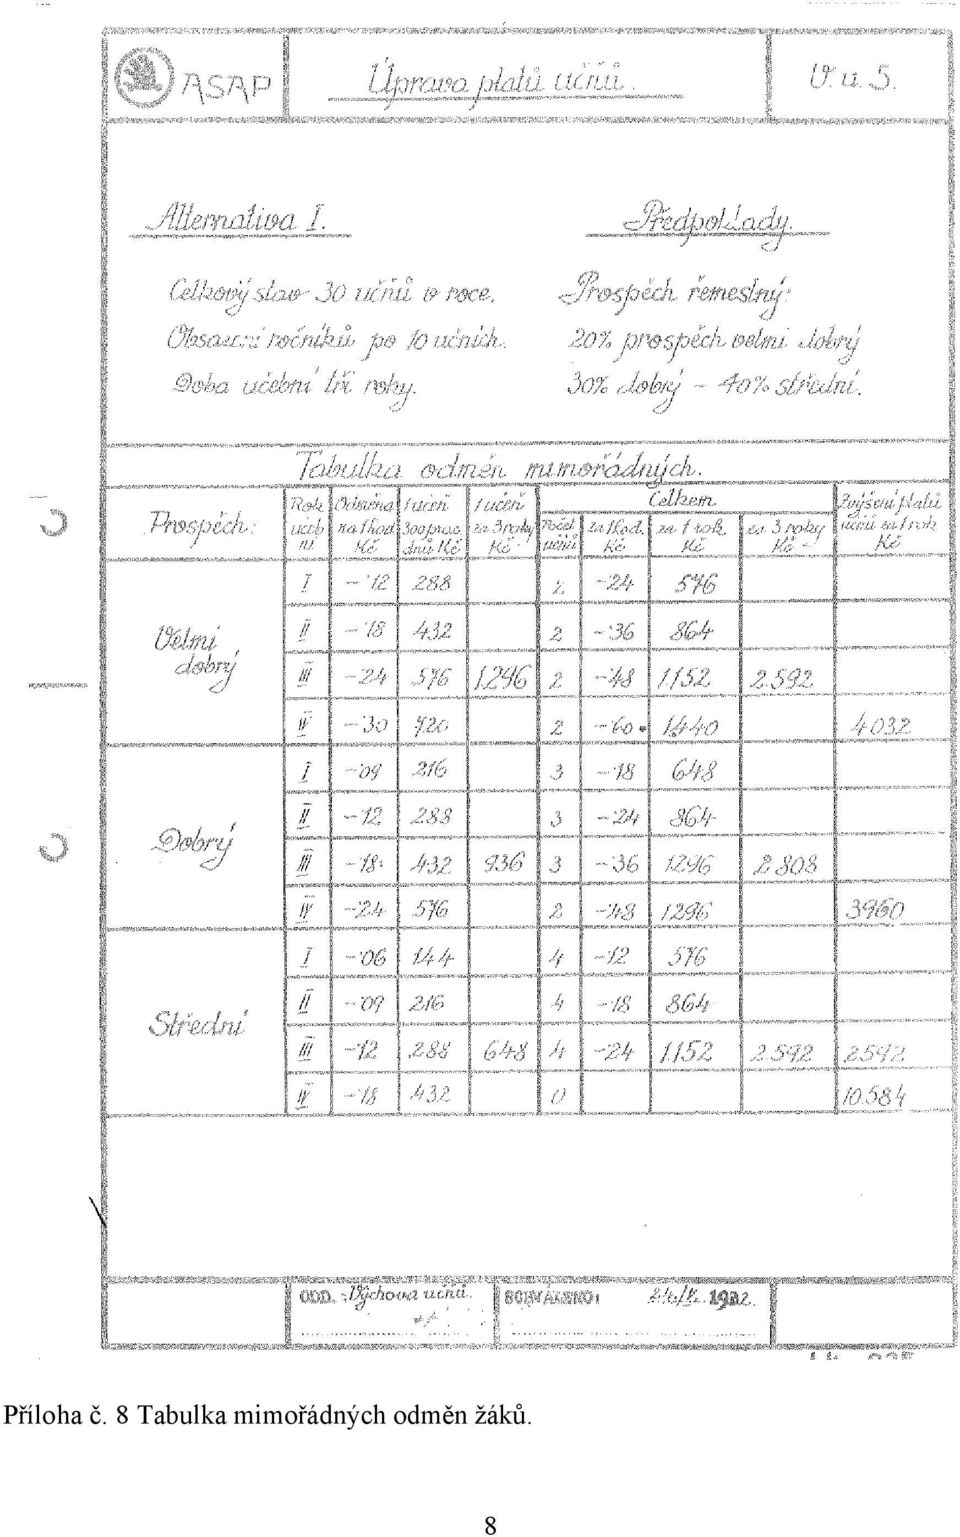 ASAP Úprava platů učňů. V. u. 5.
Alternativa I. Předpoklady.
Celkový stav 30 učňů v roce. Prospěch řemeslný:
Obsazení ročníků po 10 učních. 20% prospěch velmi dobrý
Doba učební tři roky. 30% dobrý - 40% střední.
Tabulka odměn mimořádných.
Prospěch: Rok učební Odměna na 1 hod Kč 1 učeň 300 prac. dnů Kč 1 učeň za 3 roky Kč Celkem Počet učňů za 1 hod. Kč za 1 rok Kč za 3 roky Kč Zvýšení platů učňů za 1 rok Kč
I -·12 288 2 -·24 576
Velmi dobrý II -·18 432 2 -·36 864
III -·24 576 1.296 2 -·48 1152 2.592
IV -·30 720 2 -·60 1.440 4032
I -·09 216 3 -·18 648
Dobrý II -·12 288 3 -·24 864
III -·18 432 936 3 -·36 1296 2.808
IV -·24 576 2 -·48 1296 3960
I -·06 144 4 -·12 576
Střední II -·09 216 4 -·18 864
III -·12 288 648 4 -·24 1152 2592 2592
IV -·18 432 0 10.584
ODD.: Výchova učňů. SCHVÁLENO:
Příloha č. 8 Tabulka mimořádných odměn žáků.
8